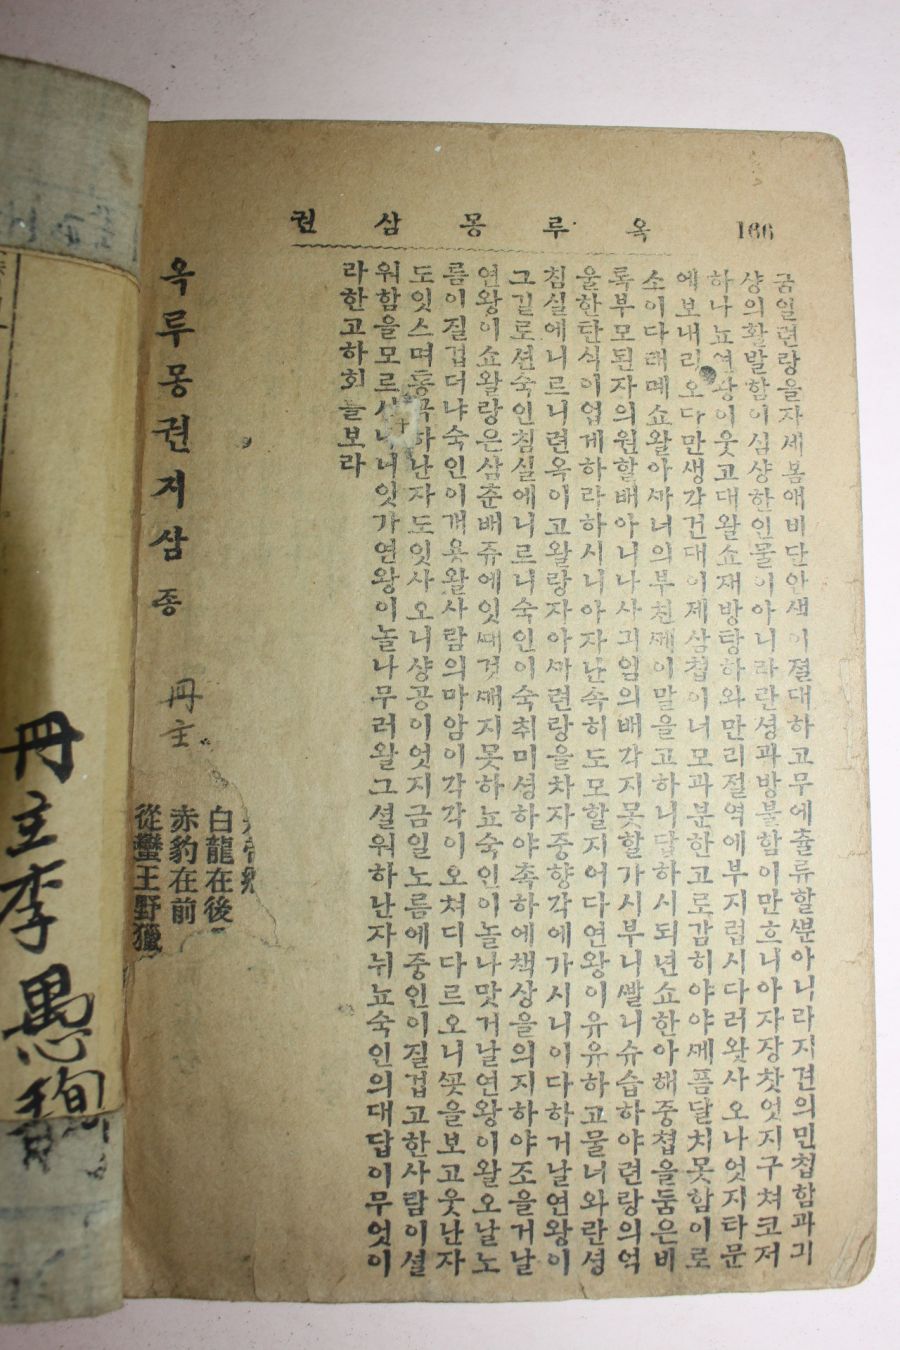 166
옥루몽삼권
굼일련랑을자세봄애비단안색이졀대하고무에츌류할뿐아니라지견의민쳡함과긔
샹의활발함이심샹한인물이아니라란셩과방불함이만흐니아자장찻엇지구쳐코저
하나뇨연왕이웃고대왈쇼재방탕하와만리졀역에부지럽시다려왓사오나엇지타문
에보내리오다만생각건대이졔삼쳡이너모과분한고로감히야야께픔달치못함이로
소이다태메쇼왈아까너의부친께이말을고하니답하시되년쇼한아해즁쳡을둠은비
록부모된자의원할배아니나사긔임의배각지못할가시부니빨니슈습하야련랑의억
울한탄식이업게하라하시니아자난속히도모할지어다연왕이유유하고물너와란셩
침실에니르니련옥이고왈랑자아까련랑을차자즁향각에가시니이다하거날연왕이
그길로션숙인침실에니르니숙인이숙취미셩하야촉하에책상을의지하야조을거날
연왕이쇼왈랑은삼츈배쥬에잇때것깨지못하뇨숙인이놀나맛거날연왕이왈오날노
름이질겁더냐숙인이개용왈사람의마암이각각이오쳐디다르오니꼿을보고웃난자
도잇스며통곡하난자도잇사오니샹공이엇지금일노름에즁인이질겁고한사람이셜
워함을모르시나니잇가연왕이놀나무러왈그셜워하난자뉘뇨숙인의대답이무엇이
라한고하회를보라
옥루몽권지삼 죵
冊主
白龍在後
赤豹在前
從蠻王野獵
冊主李愚